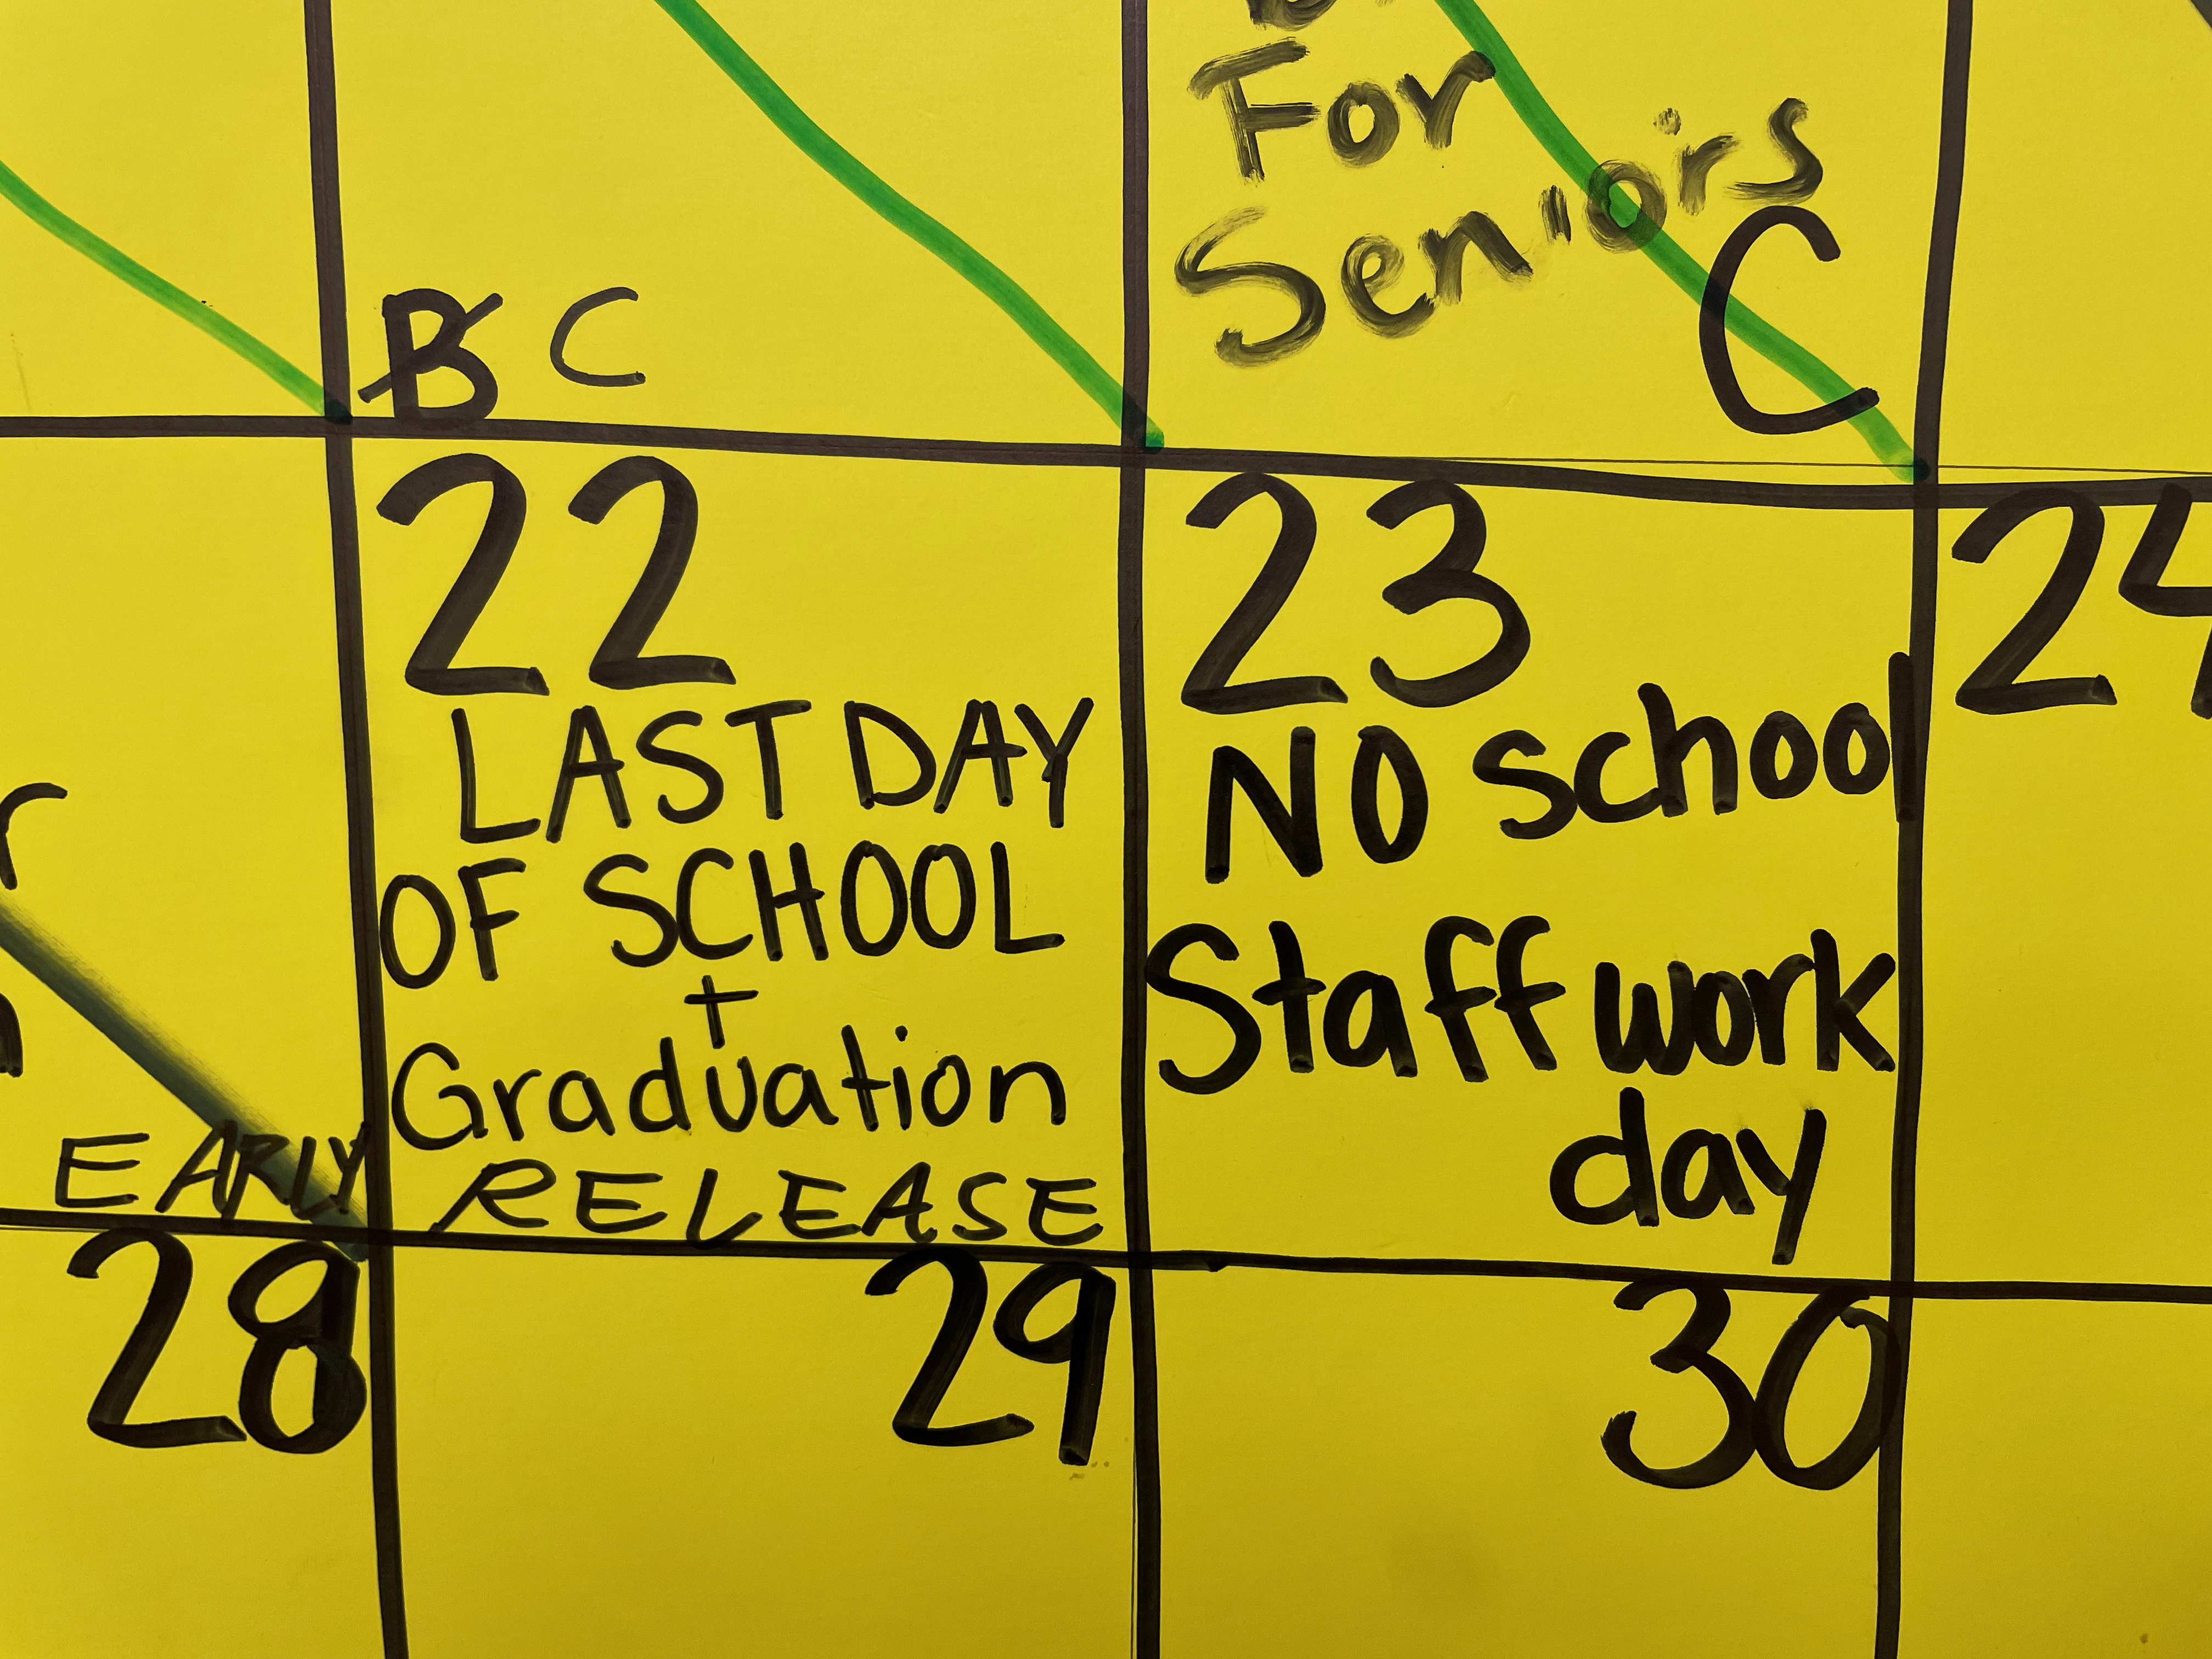 For
Seniors
B C
C
22
LAST DAY
OF SCHOOL
+
Graduation
EARLY RELEASE
23
NO school
Staff work
day
24
28
29
30